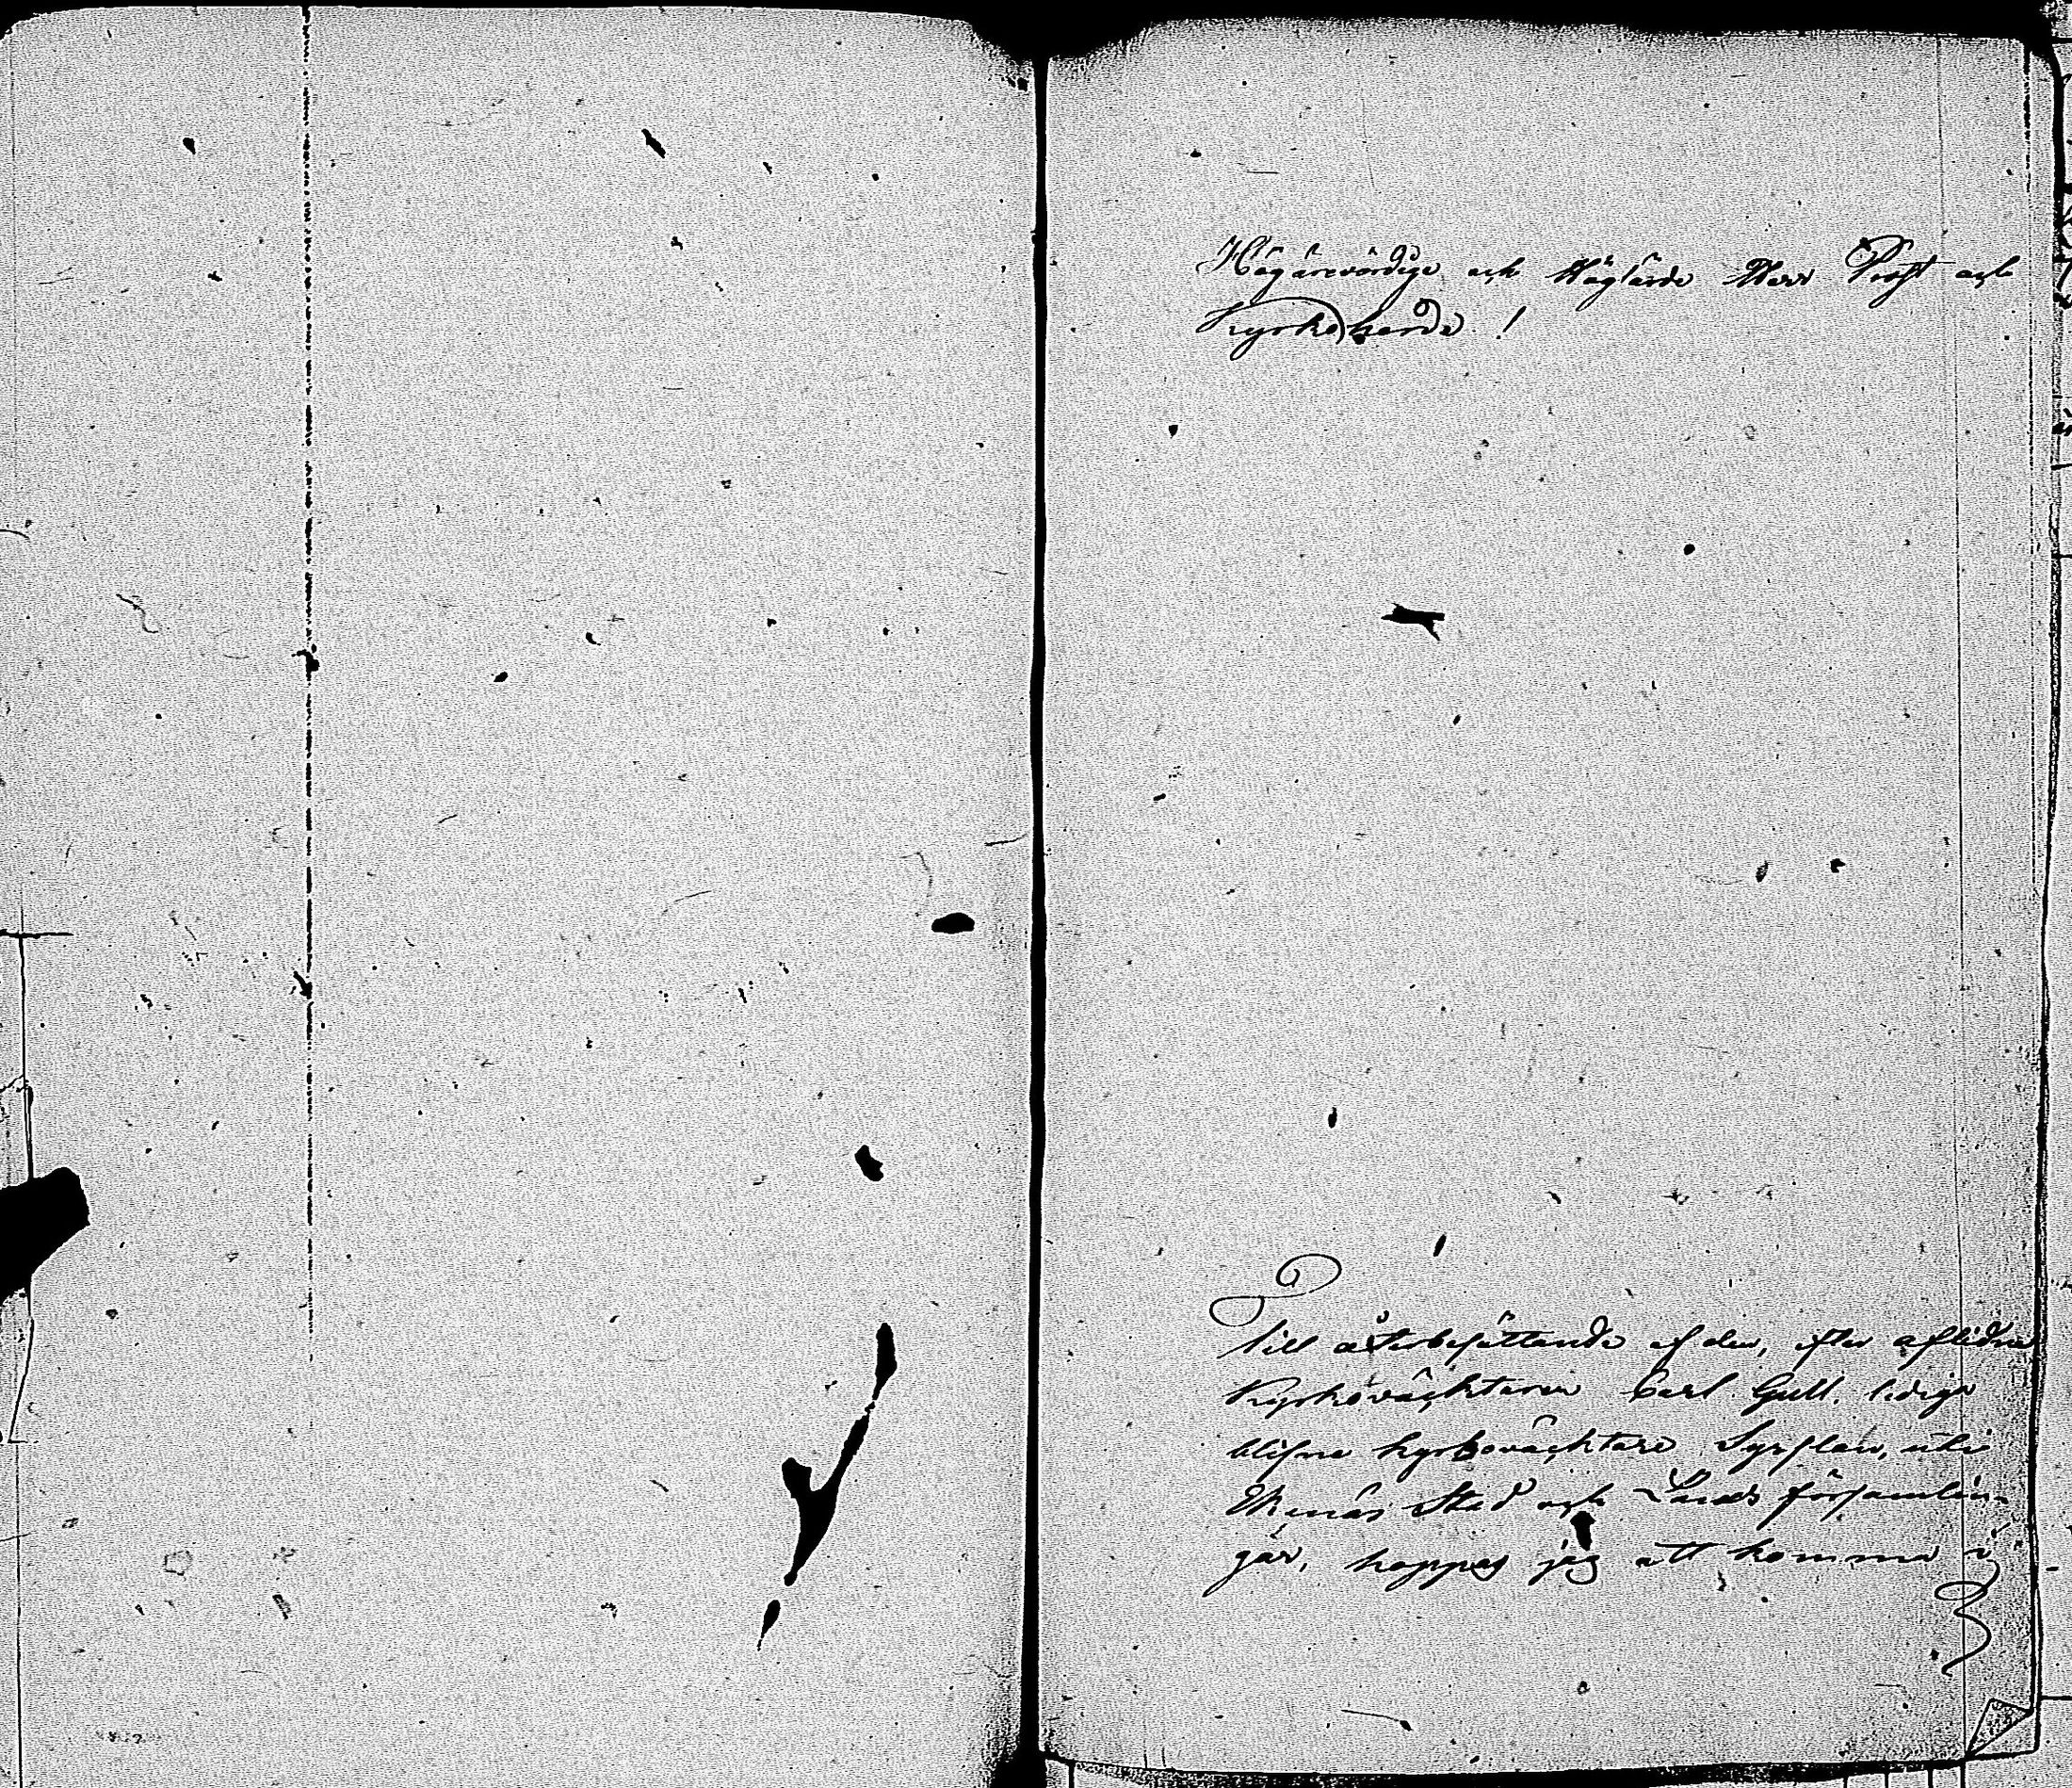 Högärevördige och Höglärde Herr Prost och
Kyrkoherde !
Till återbesättande af den, efter aflidne
Kyrkoväcktaren Carl Gull. lediga
blifne kyrkovächtare Sysslan, uti
Ekenäs Stad och Lands församlin-
gar, hoppas jag att komma i